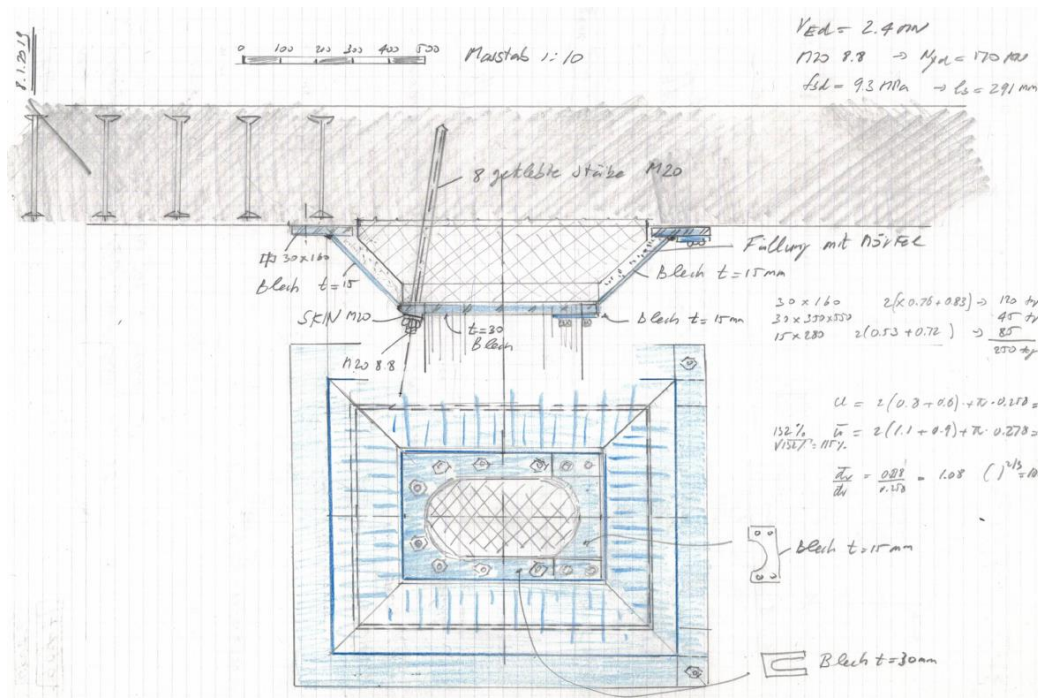 8.1.2019
0 100 200 300 400 500
Masstab 1:10
VEd = 2.4 MN
M20 8.8 →
fsd = 9.3 MPa → ls = 291 mm
8 geklebte Stäbe M20
30x160
Blech t=15
Füllung mit MÖRTEL
Blech t=15mm
SKIN M20
t=30
Blech
Blech t=15mm
M20 8.8
30 x 160 2(x0.76+0.83) → 120
30x350x550 45
15x280 2(0.53+0.72) → 85
250 kg
u = 2(0.8+0.6)+π·0.258=
132% ū = 2(1.1+0.9)+π·0.278=
= 1.08
Blech t=15mm
Blech t=30mm